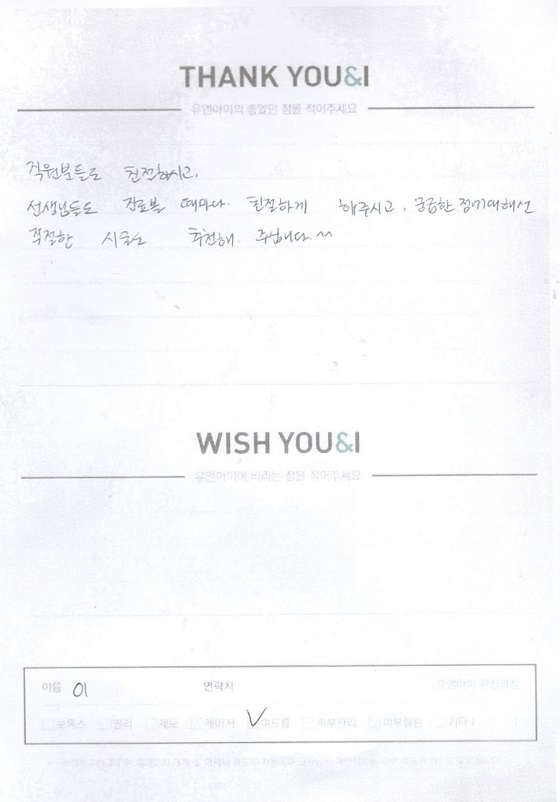 THANK YOU&I
유앤아이의 좋았던 점을 적어주세요
직원분들도 친절하시고,
선생님들도 진료볼 때마다. 친절하게 해주시고, 궁금한 점에대해선
적절한 시술도 추천해. 주십니다.^^
WISH YOU&I
유앤아이에 바라는 점을 적어주세요
이름 이 연락처 유앤아이 관심리스트
보톡스 필러 제모 레이저 여드름 피부관리 피부질환 기타 ( )